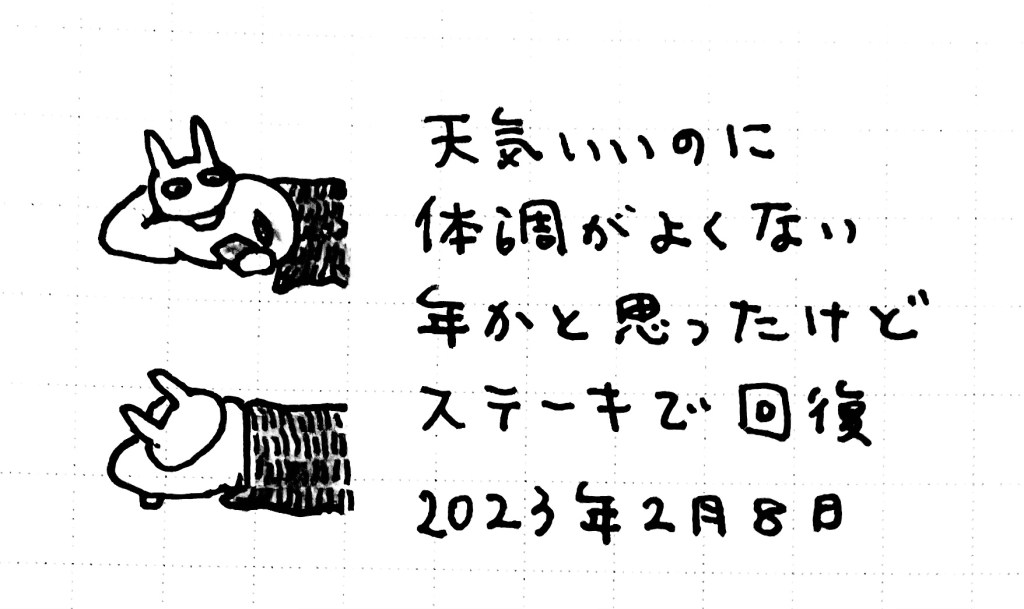 天気いいのに
体調がよくない
年かと思ったけど
ステーキで回復
2023年2月8日